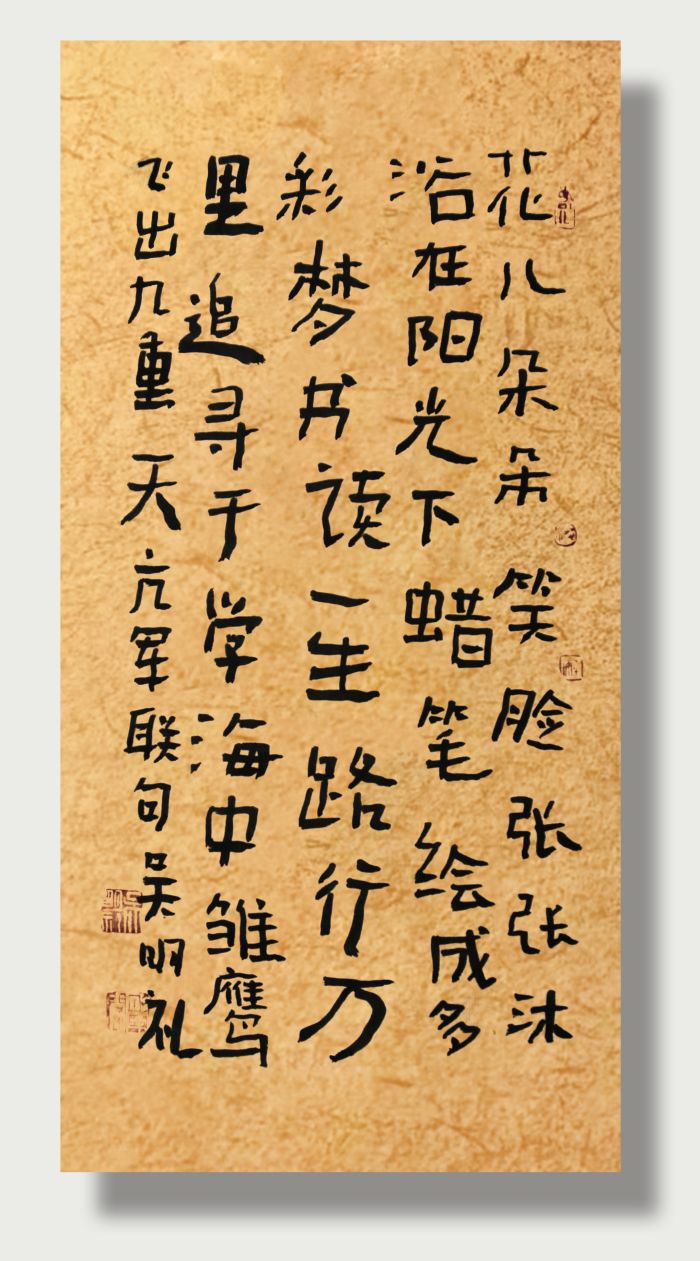 花儿朵朵笑脸张张沐
浴在阳光下蜡笔绘成多
彩梦书读一生路行万
里追寻于学海中雏鹰
飞出九重天亢军联句吴明礼